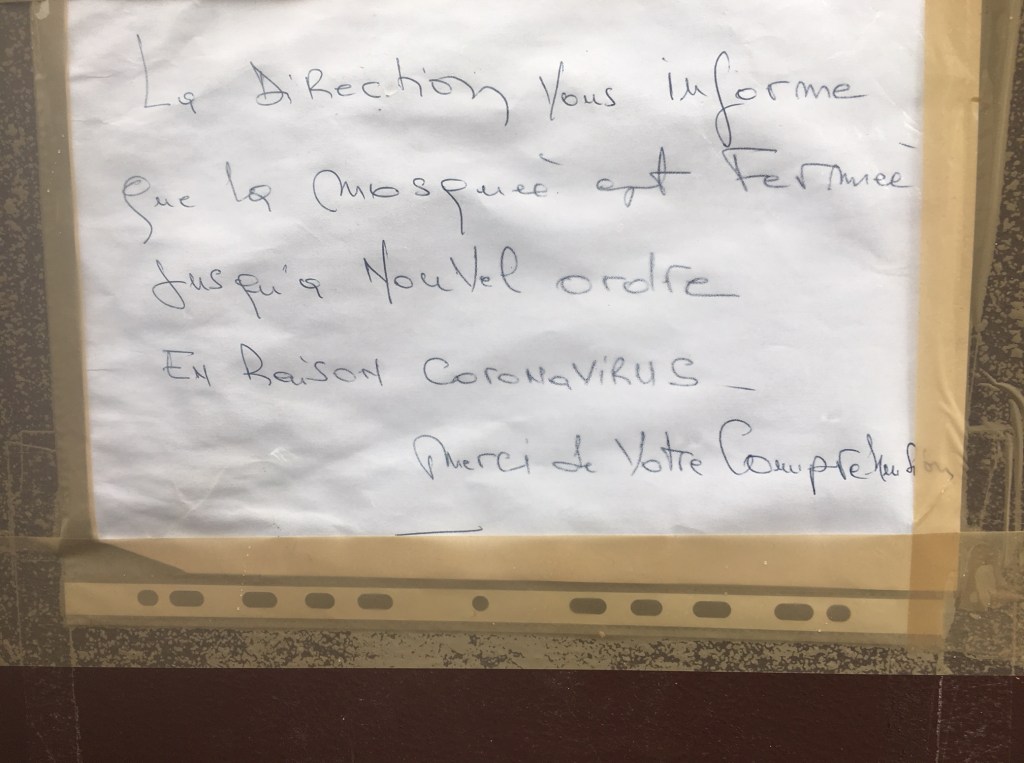 La Direction Vous informe
que la mosqueè est Fermeè
Jusqu'a Nouvel ordre
En Raison CoronaVIRUS -
Merci de Votre Comprehension